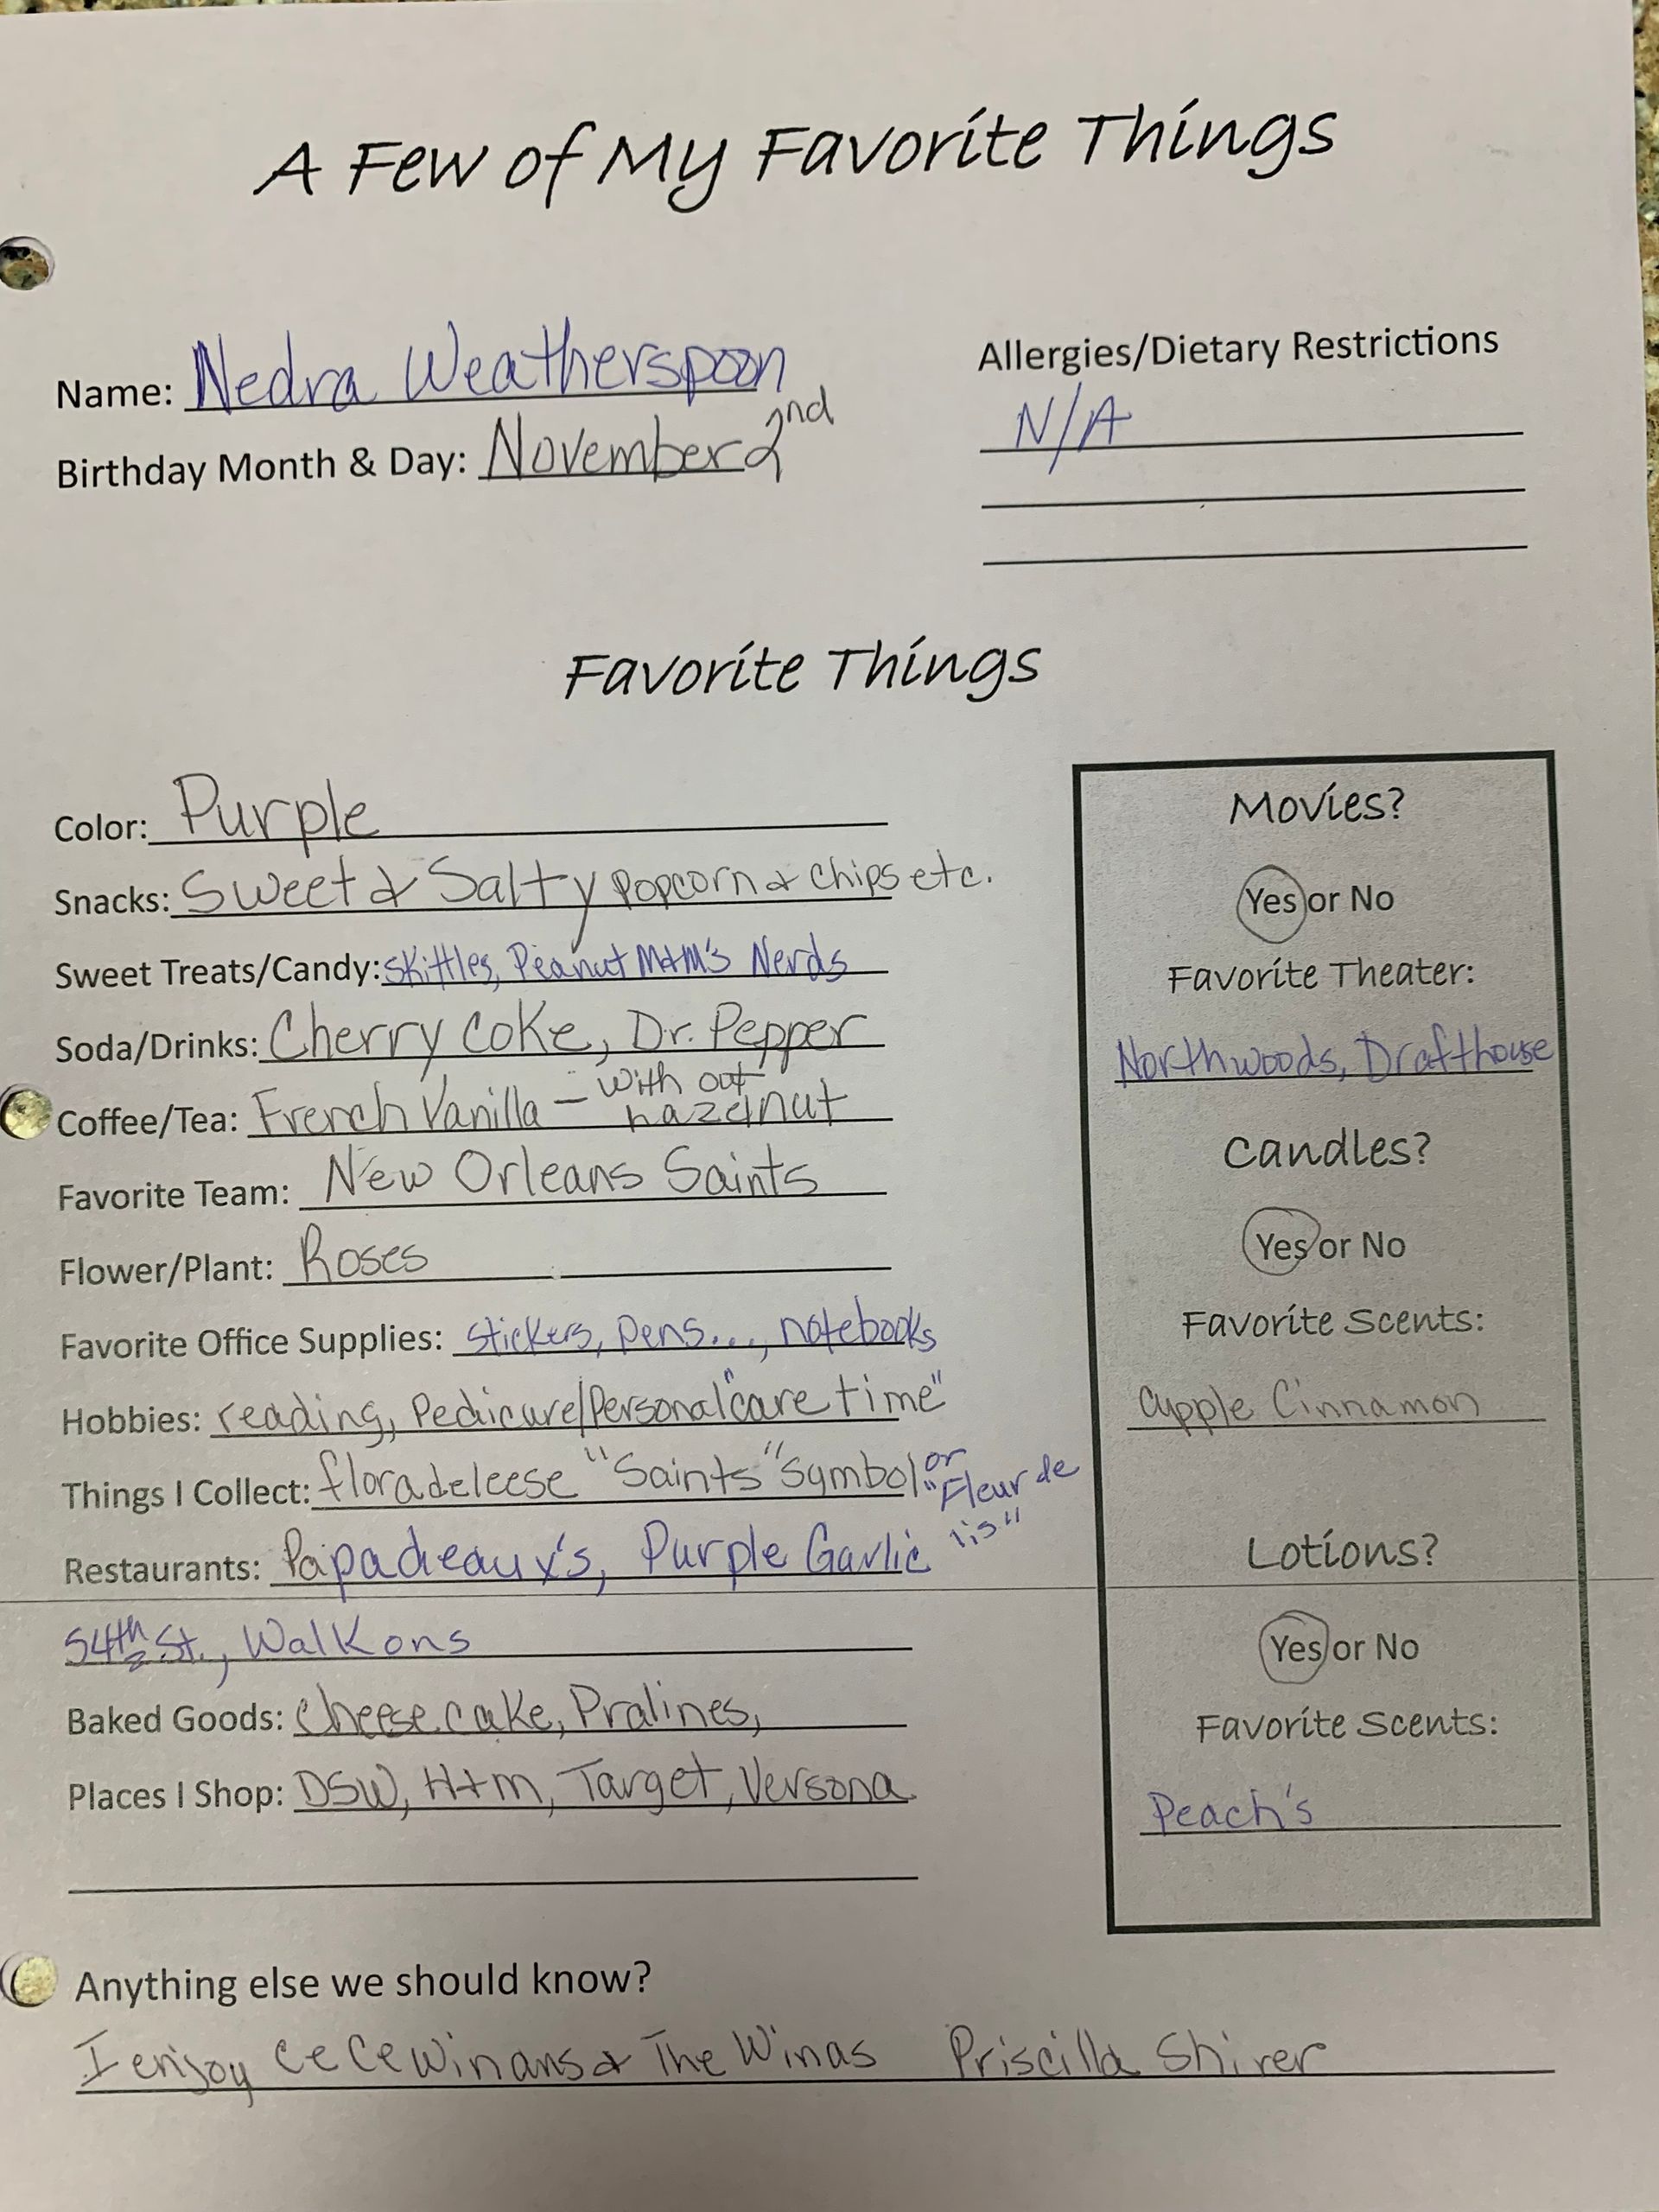 A Few of My Favorite Things
Name: Nedra Weatherspoon
Birthday Month & Day: November 2nd
Allergies/Dietary Restrictions
N/A
Favorite Things
Color: Purple
Snacks: Sweet & Salty Popcorn & Chips etc.
Sweet Treats/Candy: Skittles, Peanut M&M's Nerds
Soda/Drinks: Cherry Coke, Dr. Pepper
Coffee/Tea: French Vanilla - with out hazelnut
Favorite Team: New Orleans Saints
Flower/Plant: Roses
Favorite Office Supplies: stickers, pens..., notebooks
Hobbies: reading, Pedicure/Personal "care time"
Things I Collect: floradeleese "Saints" symbol or "Fleur de lis"
Restaurants: Papadieaux's, Purple Garlic
54th St., Walk ons
Baked Goods: Cheese cake, Pralines,
Places I Shop: DSW, H+m, Target, Versona
Movies?
Yes or No
Favorite Theater:
Northwoods, Drafthouse
Candles?
Yes or No
Favorite Scents:
apple Cinnamon
Lotions?
Yes or No
Favorite Scents:
Peach's
Anything else we should know?
I enjoy CeCe Winans & The Winas Priscilla Shirer